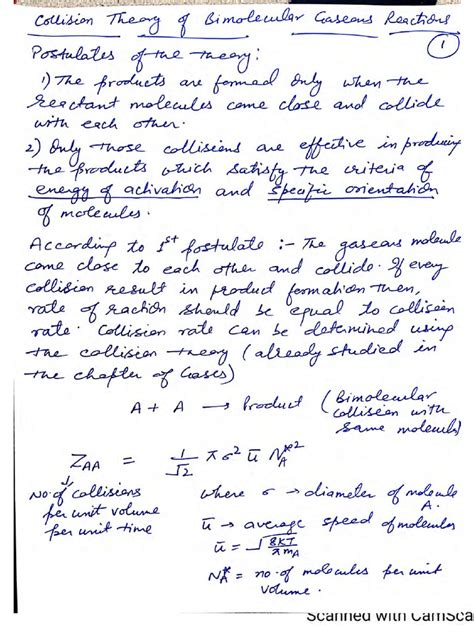 Collision Theory of Bimolecular Gaseous Reactions
1
Postulates of the theory:
1) The products are formed only when the
reactant molecules come close and collide
with each other.
2) Only those collisions are effective in producing
the products which satisfy the criteria of
energy of activation and specific orientation
of molecules.
According to 1st postulate :- The gaseous molecule
come close to each other and collide. If every
collision result in product formation then,
rate of raction should be equal to collision
rate. Collision rate can be determined using
the collision theory (already studied in
the chapter of Gases)
A + A → Product (Bimolecular
collision with
same molecule)
Z_AA = 1/√2 π σ² ū N_A*²
No. of collisions
per unit volume
per unit time
where σ → diameter of molecule
A.
ū → average speed of molecules
ū = √(8KT/πm_A)
N_A* = no. of molecules per unit
volume.
Scanned with CamSca